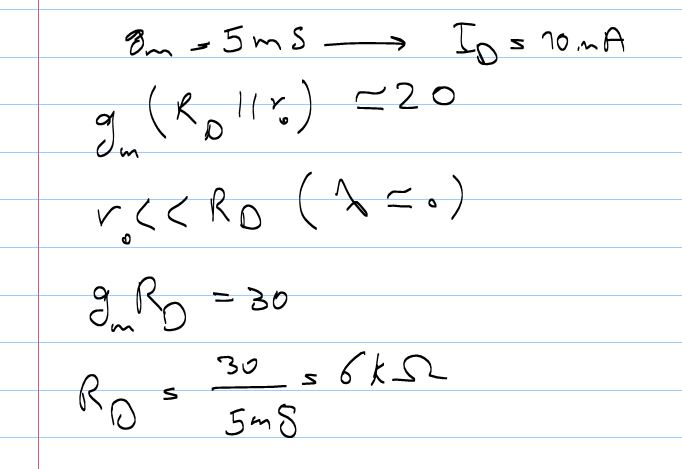 gm = 5mS → I_D = 10mA
g_m (R_D || r_o) ≃ 20
r_o << R_D (λ ≃ 0)
g_m R_D = 30
R_D = 30 / 5mS = 6kΩ